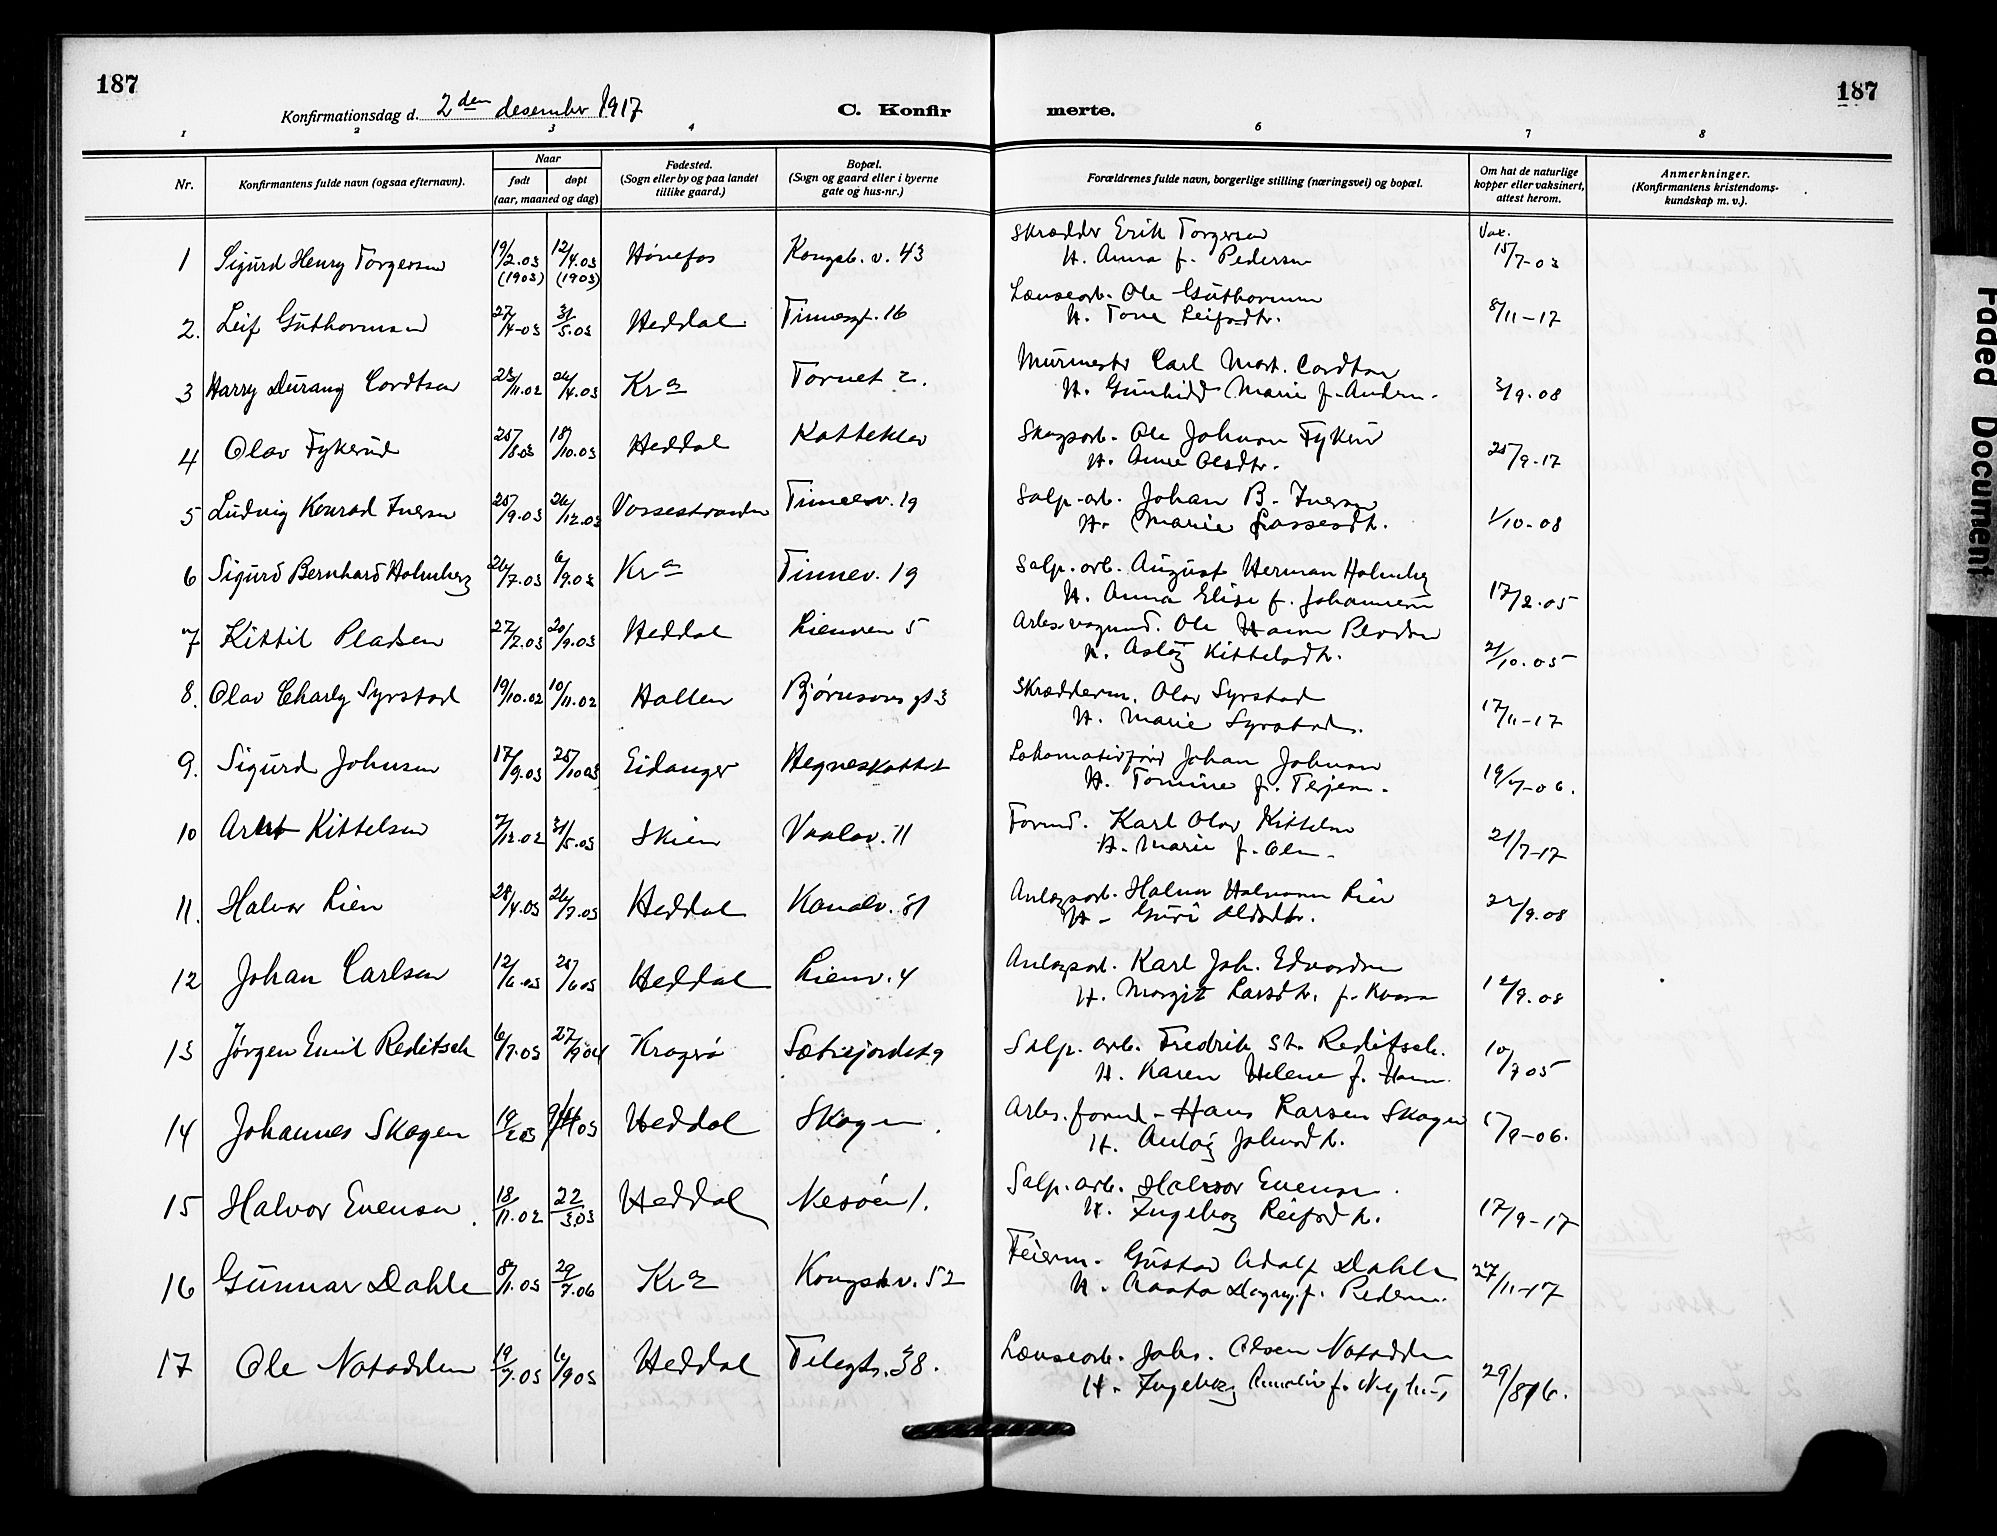 187
187
Konfirmationsdag d. 2den desember 1917
C. Konfir merte.
1 2 3 4 5 6 7 8
Nr.
Konfirmantens fulde navn (ogsaa efternavn).
Naar
født døpt
(aar, maaned og dag)
Fødested.
(Sogn eller by og paa landet
tillike gaard.)
Bopæl.
(Sogn og gaard eller i byerne
gate og hus-nr.)
Forældrenes fulde navn, borgerlige stilling (næringsvei) og bopæl.
Om hat de naturlige
kopper eller vaksinert,
attest herom.
Anmerkninger.
(Konfirmantens kristendoms-
kundskap m. v.).
1 Sigurd Henry Torgersen 19/2.03 (1903) 12/4.03 (1903) Hønefos Kongsb. v. 43 Skrædder Erik Torgersen Vax. 15/7-03
H. Anna f. Pedersen
2. Leif Guthormsen 27/4-03 31/5.03 Heddal Tinnesgt. 16 Lænsearb. Ole Guthormsen 8/11-17
H. Tone Leifsdtr.
3 Harry Durang Cordtsen 23/11.02 26/4.03 Kra Torvet 2. Murmester Carl Mart. Cordtsen 3/9.08
H. Gunhild Marie f. Anders.
4 Olav Fykerud 25/8.03 18/10.03 Heddal Katteklev Skogsarb. Ole Johnsen Fykerud 25/9-17
H. Anne Olsdtr.
5 Ludvig Konrad Iversen 25/9.03 26/12.03 Vossestranden Tinnesv. 19 Salp.-arb. Johan B. Iversen 1/10-08
H. Marie Lassesdtr.
6 Sigurd Bernhard Holmberg 26/7.03 6/9.03 Kra Tinnev. 19 Salp. arb. August Herman Holmberg 17/2.05
H. Anna Elise f. Johannesen
7 Kittil Pladsen 27/7.03 20/9.03 Heddal Lienveien 5 Ole Pladsen 2/10.05
H. Aslög Kittelsdtr.
8. Olav Charly Syrstad 19/10.02 10/11.02 Hallen Bjørnsons gt 3 Skrædderm. Olav Syrstad 17/11-17
H. Marie Syrstad.
9. Sigurd Johnsen 17/9.03 25/10.03 Eidanger Hegneskottet Lokomotivfører Johan Johnsen 19/7-06.
H. Tomine f. Terjesen.
10 Kittelsen 7/12.02 31/5.03 Skien Vaalav. 11 Formd. Karl Olav Kittelsen 21/7-17
H. Marie f. Olsen.
11. Halvor Lien 28/4.03 26/7.03 Heddal Kanalv. 81 Anlægsarb. Halvor Halvorsen Lien 22/9.08
H. Guri Oldsdtr.
12 Johan Carlsen 12/6.03 Heddal Lienv. 4 Anlægsarb. Karl Joh. Edvardsen 12/9.08
H. Margit Larsdtr. f. Kvam
13 Jørgen Emil Reditsch 6/7.03 27/9 04 Kragerø Sætrejordet 9 Salp. arb. Fredrik St. Reditsch. 10/7 05
H. Karen Helene f. Hans.
14 Johannes Skogen 19/2.03 Heddal Skogen. Arbs. formd - Hans Larsen Skogen 5/9-06.
H. Aslög Johnsdtr.
15 Halvor Evensen. 18/11.02 22/3.03 Heddal Nesøen 1. Salp. arb. Halvor Evensen. 17/9-17
H. Ingeborg Leifsdtr.
16 Gunnar Dahle 8/1.03 29/7.06 Kra Kongsb. v. 52 Feierm. Gustav Adolf Dahle 27/11-17
H. Aasta Dagny f. Pedersen.
17 Ole Notodden 19/7.03 6/9 03 Heddal Telegts. 38. Lænsearb. Johs. Olsen Notodden 29/8 16.
H. Ingeborg f. Nyhus
Faded Document